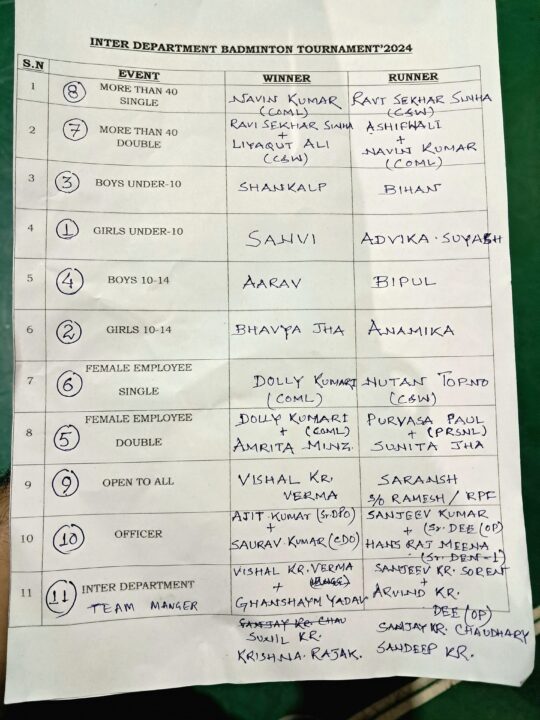 INTER DEPARTMENT BADMINTON TOURNAMENT'2024
S.N EVENT WINNER RUNNER
1 8 MORE THAN 40 SINGLE NAVIN KUMAR (COML) RAVI SEKHAR SINHA (C&W)
2 7 MORE THAN 40 DOUBLE RAVI SEKHAR SINHA + LIYAQUT ALI (C&W) ASHIFWALI + NAVIN KUMAR (COML)
3 3 BOYS UNDER-10 SHANKALP BIHAN
4 1 GIRLS UNDER-10 SANVI ADVIKA. SUYASH
5 4 BOYS 10-14 AARAV BIPUL
6 2 GIRLS 10-14 BHAVYA JHA ANAMIKA
7 6 FEMALE EMPLOYEE SINGLE DOLLY KUMARI (COML) NUTAN TOPNO (C&W)
8 5 FEMALE EMPLOYEE DOUBLE DOLLY KUMARI + (COML) AMRITA MINZ. PURVASA PAUL + (PRSNL) SUNITA JHA
9 9 OPEN TO ALL VISHAL KR. VERMA SARANSH S/O RAMESH / RPF
10 10 OFFICER AJIT KUMAR (Sr.DPO) + SAURAV KUMAR (CDO) SANJEEV KUMAR + (Sr. DEE (OP) HANS RAJ MEENA (Sr. DEN-1)
11 11 INTER DEPARTMENT TEAM MANGER VISHAL KR. VERMA + (ENGG) GHANSHAYM YADAV SANJEEV KR. SOREN + ARVIND KR. DEE (OP)
SANJAY KR. CHAU SANJAY KR. CHAUDHARY
SUNIL KR.
KRISHNA RAJAK. SANDEEP KR.